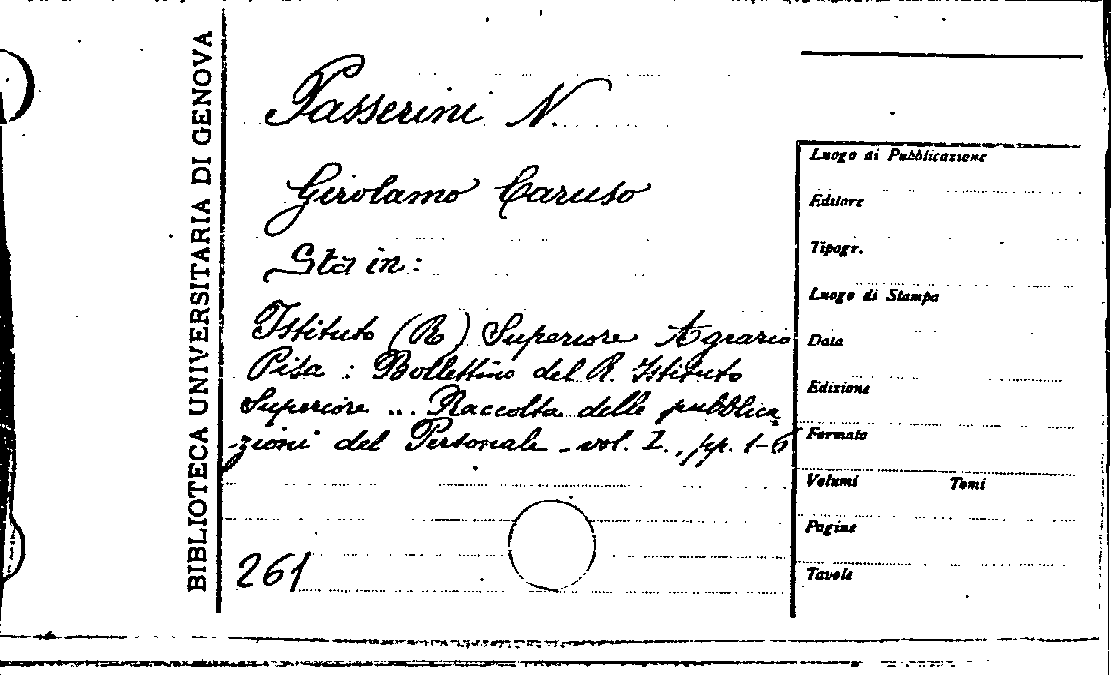 BIBLIOTECA UNIVERSITARIA DI GENOVA
Passerini N.
Girolamo Caruso
Sta in:
Istituto (R) Superiore Agrario
Pisa : Bollettino del R. Istituto
Superiore ... Raccolta delle pubblica
-zioni del Personale - vol. I., pp. 1-6
261
Luogo di Pubblicazione
Editore
Tipogr.
Luogo di Stampa
Data
Edizione
Formato
Volumi Tomi
Pagine
Tavole